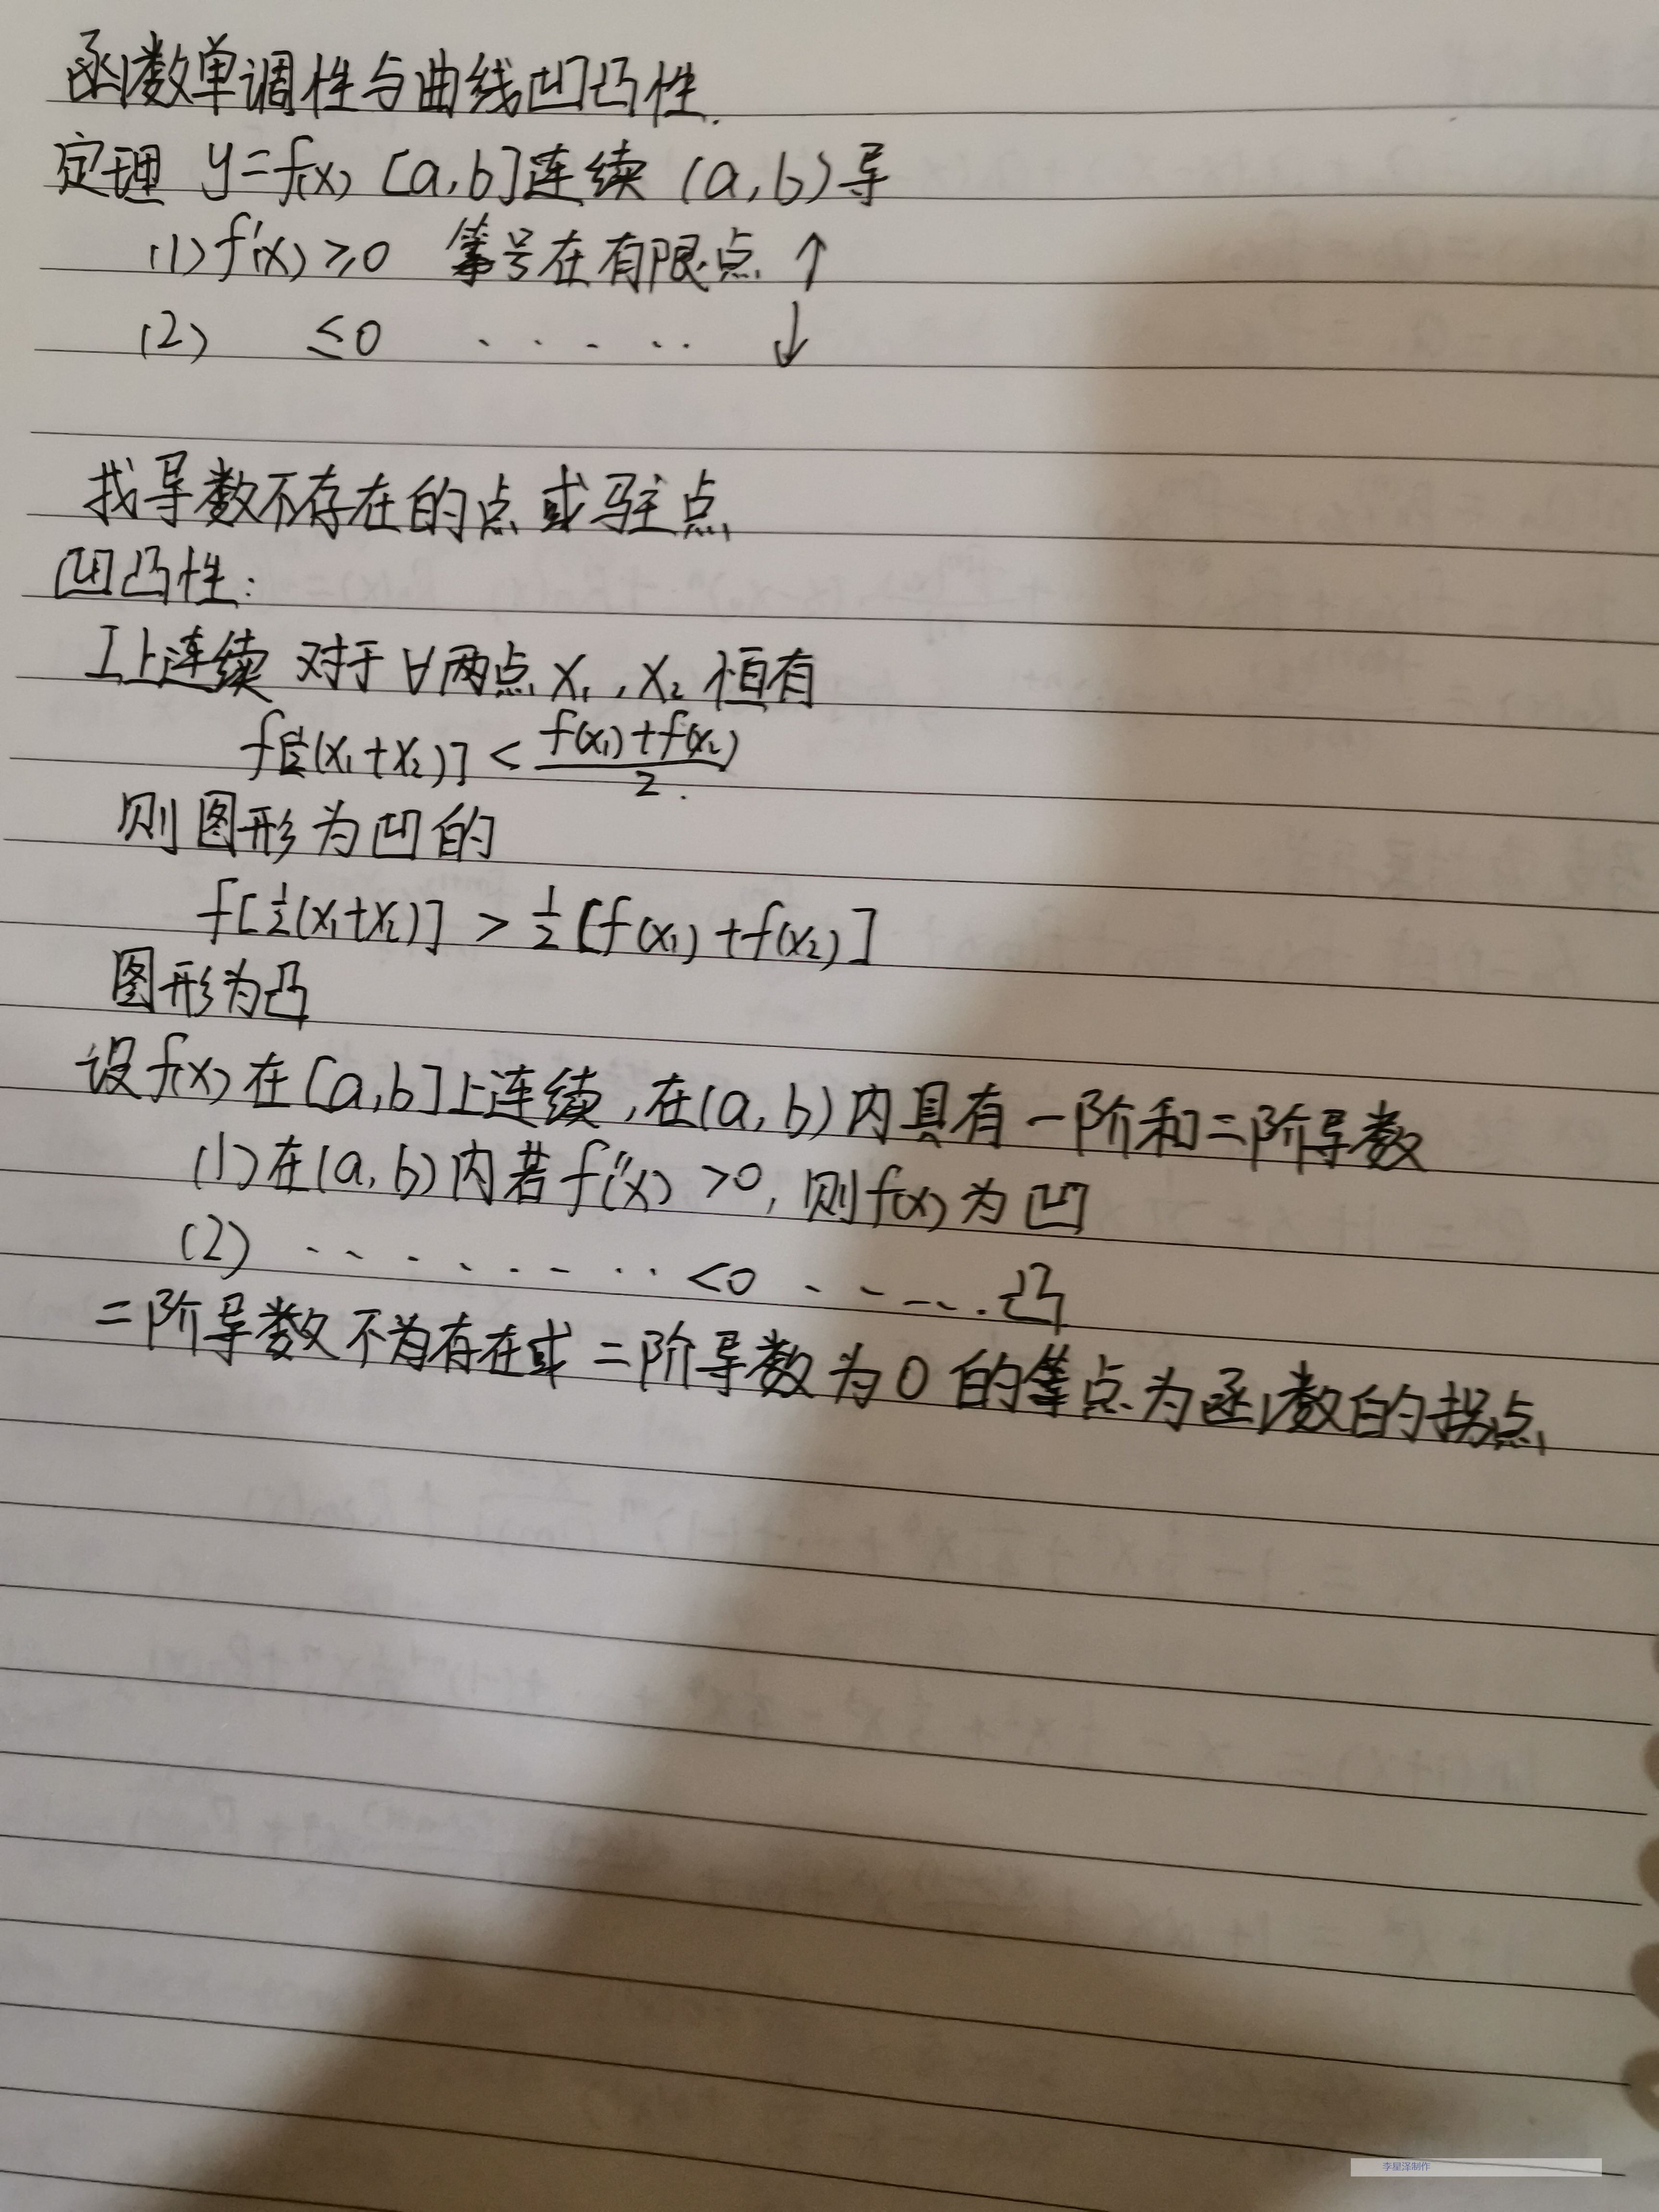 函数单调性与曲线凹凸性.
定理 y=f(x) [a,b]连续 (a,b)导
(1) f'(x)≥0 等号在有限点 ↑
(2) ≤0 ..... ↓
找导数不存在的点或驻点
凹凸性:
I上连续 对于∀两点 x₁,x₂ 恒有
f[½(x₁+x₂)] < (f(x₁)+f(x₂))/2.
则图形为凹的
f[½(x₁+x₂)] > ½[f(x₁)+f(x₂)]
图形为凸
设f(x)在[a,b]上连续,在(a,b)内具有一阶和二阶导数
(1)在(a,b)内若f''(x)>0,则f(x)为凹
(2) ........ <0 .....凸
二阶导数不存在或二阶导数为0的点为函数的拐点
李星泽制作